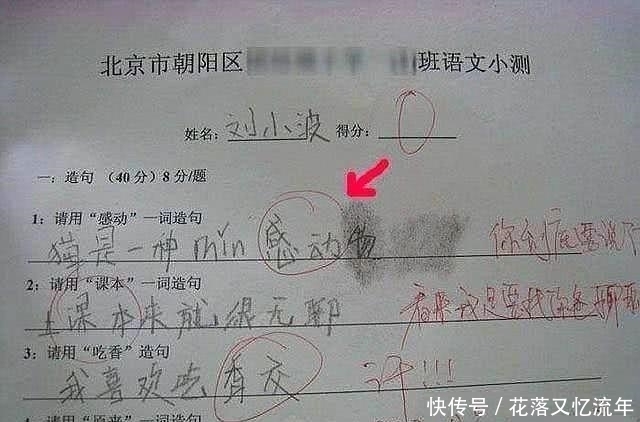 北京市朝阳区 班语文小测
姓名：刘小波 得分：0
一：造句 （40分）8分/题
1：请用“感动”一词造句
猫是一种min感动物
你到底要说
2：请用“课本”一词造句
上课本来就很无聊
看来我是要找你爸聊聊
3：请用“吃香”造句
我喜欢吃香交
汗!!!
快传号／花落又忆流年